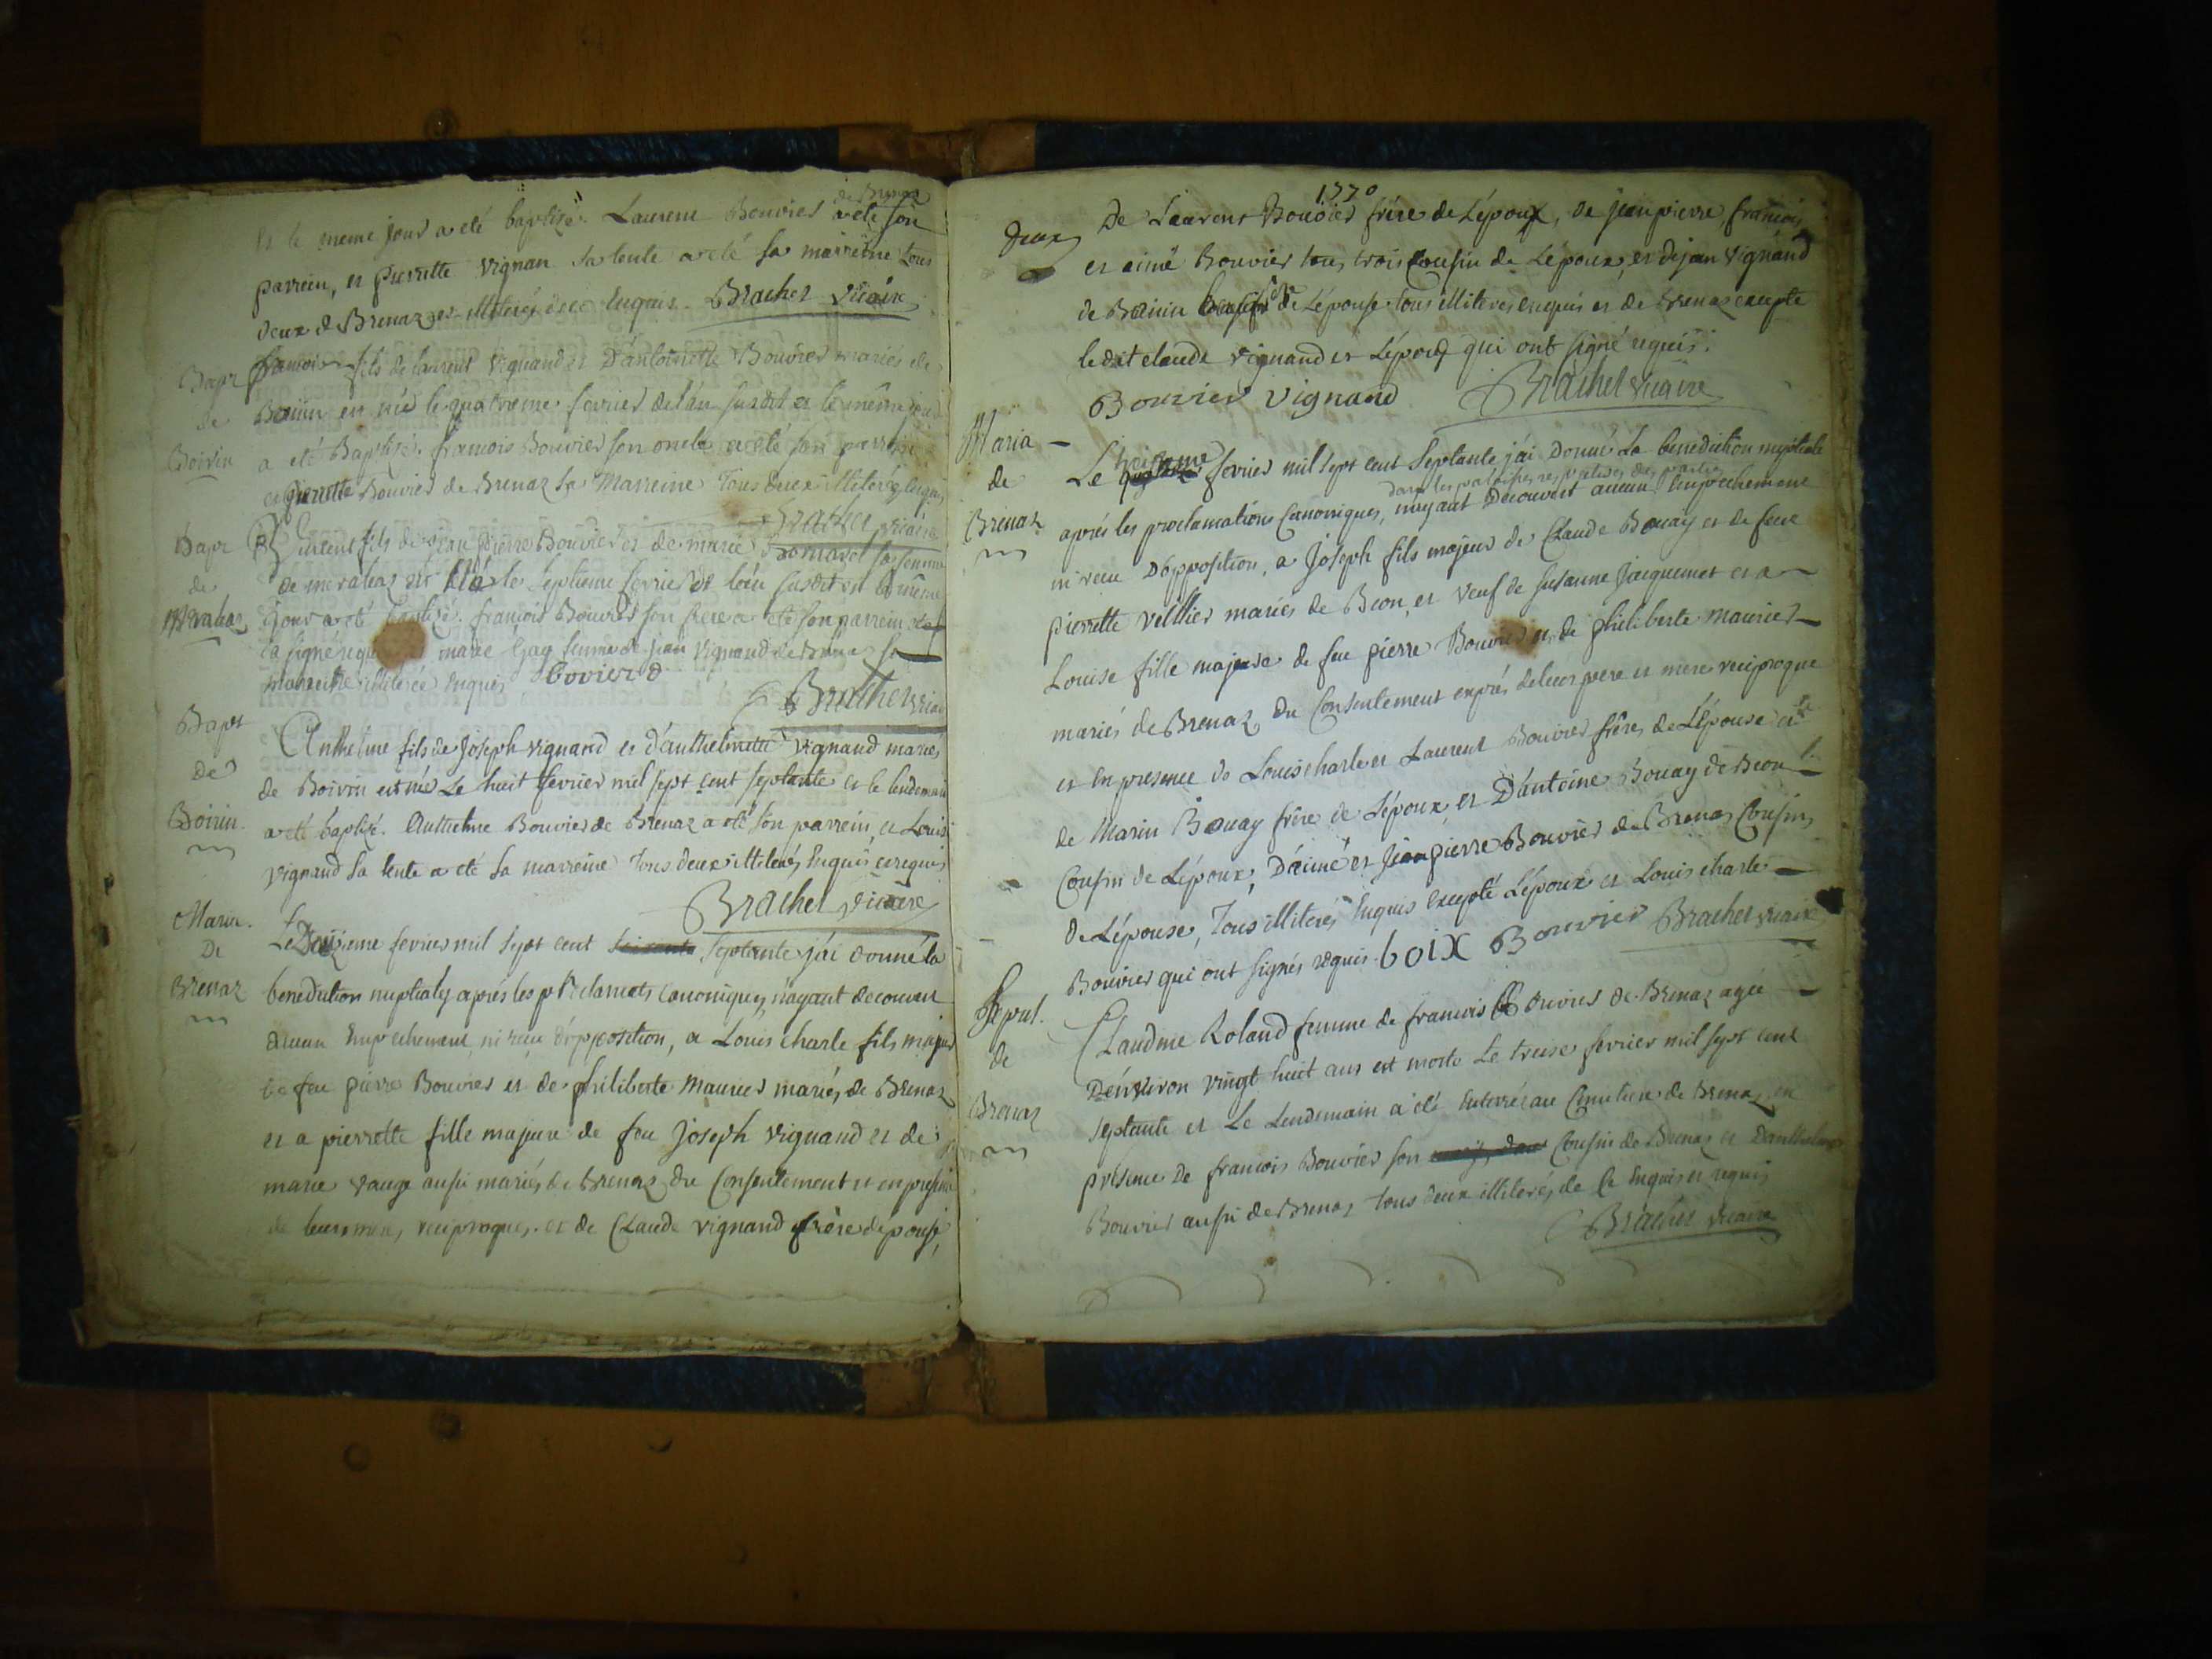 de Brenaz
Et le meme jour a eté baptisé. Laurent Bouvier a eté son
parrein, et pierrette vignan sa tente a eté sa marreine tous
deux de Brenaz et illiterés enquis. Brachet vicaire
Bapt
de
Boirin
francois fils de laurent vignand et D'antoinette Bouvier mariés de
Boirin est né le quatrieme fevrier de l'an susdit et le même jour
a eté Baptisé. francois Bouvier son oncle a eté son parrein
et pierrette Bouvier de Brenaz sa Marreine Tous deux illiterés enquis
Brachet vicaire
Bapt
de
Meraleaz
fils de jean pierre Bouvier et de marie sa femme
de meraleaz est né le septieme fevrier de l'an susdit et le même
jour a eté baptisé. francois Bouvier son frere a eté son parrein
a signé marie Gay femme de jean vignand de sa
marreine illiterée enquis bovierd
Brachet vicaire
Bapt
de
Boirin
Anthelme fils de joseph vignand et d'anthelmette vignand mariés
de Boirin est né Le huit fevrier mil sept cent septante et le lendemain
a eté baptisé. Anthelme Bouvier de Brenaz a eté son parrein et Louise
vignand sa tente a eté sa marreine Tous deux illiterés Enquis et requis
Brachet vicaire
Maria.
De
Brenaz
Le fevrier mil sept cent septante j'ai donné la
benediction nuptiale aprés les proclamats canoniques, n'ayant decouvert
aucun Empechement ni reçu d'opposition, a Louis charle fils majeur
de feu pierre Bouvier et de philiberte maurier mariés de Brenaz
et a pierrette fille majeure de feu joseph vignand et de
marie vauge aussi mariés de Brenaz du Consentement et en presence
de leurs meres reciproques. et de Claude vignand frère d'epouse,
1770
deux
De Laurent Bouvier frére de L'époux, de jeanpierre, francois
et aimé Bouvier tous trois Cousin de L'époux, et de jean vignand
de Boirin Cousin de L'épouse. tous illiteres enquis et de Brenaz excepte
le dit claude vignand et L'époux qui ont signé requis.
Bouvier vignand Brachet vicaire
Maria
de
Brenaz
Le treizieme fevrier mil sept cent Septante j'ai Donné La benediction nuptiale
dans les paroisses respectives des parties
aprés les proclamations Canoniques, n'ayant Decouvert aucun Empechement
ni reçu D'opposition, a Joseph fils majeur de Claude Bouay et de feue
pierrette vellier mariés de Beon, et veuf de susanne Jacquemet et a
Louise fille majeure de feu pierre Bouvier et de philiberte maurier
mariés de Brenaz du Consentement exprés de leur pere et mere reciproque
et en presence de Louis charle et Laurent Bouvier fréres de L'épouse et
de Marin Bouay frére de L'époux, et D'antoine Bouay de Beon
Cousin de L'époux, D'aimé et jeanpierre Bouvier de Brenaz Cousins
de L'épouse, Tous illiterés Enquis Excepté L'époux et Louis charle
Bouvier qui ont signés requis boix Bouvier Brachet vicaire
Sepul.
de
Brenaz
Claudine Roland femme de francois Bouvier de Brenaz agée
D'environ vingt huit ans est morte Le treise fevrier mil sept cent
septante et Le Lendemain a eté enterrée au Cimetiere de Brenaz, en
présence de francois Bouvier son Cousin de Brenaz et D'anthelme
Bouvier aussi de Brenaz Tous deux illiterés de Ce Enquis et requis
Brachet vicaire